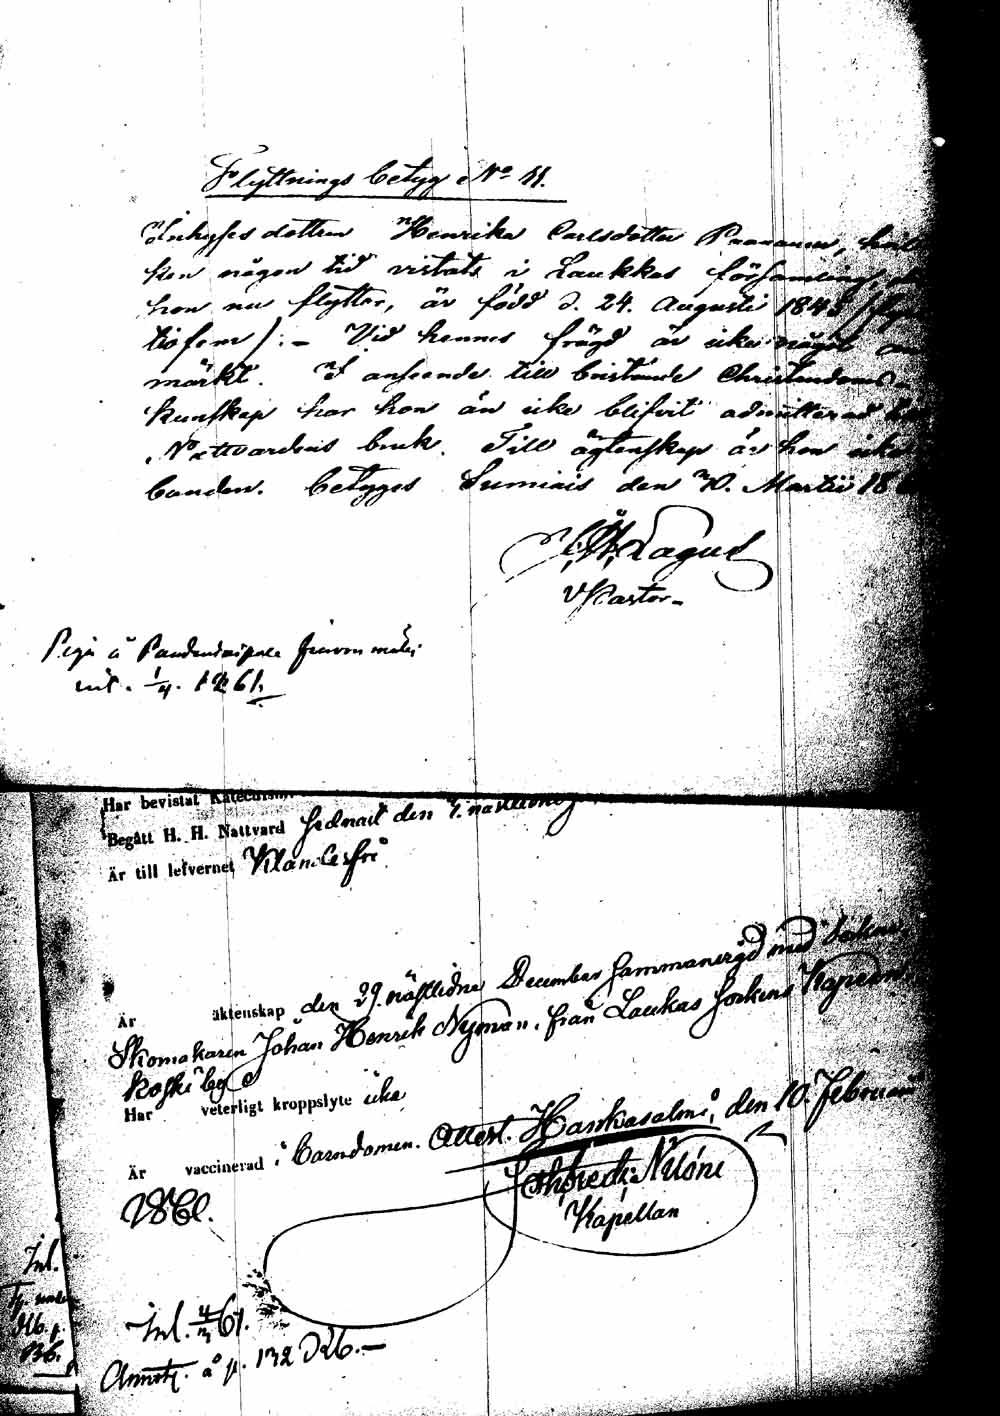 Flyttnings betyg No 11.
Inhyses dottern Henrika Carlsdotter Paananen,
hon någon tid vistats i Laukkas församling,
hon nu flytter, är född d. 24. Augusti 184
tiofem). – Vid hennes frägd är icke något
märkt. I anseende till bristande Christendoms-
kunskap har hon än icke blifvit admitterad
Nattvardens bruk. Till ägtenskap är hon icke
bunden. Betygas Sumiais den 20. Martii 18
Lagus
V Pastor.
Piga å
inl. 1/4. 1861.
Har bevistat
Begått H. H. Nattvard sednast den 7.
Är till lefvernet Klanderfri
Är äktenskap den 29 nästledne December sammanvigd med
Skomakaren Johan Henrik Nyman, från Laukas Sockens
koski by
Har veterligt kroppslyte icke
Är vaccinerad i barndomen. Attest. Hankasalmi, den 10. Februari
1861.
Nilóni
Kapellan
Inl. 4/3 61.
Annot. å p. 132 Dkb.
Inl.
Dkb. p.